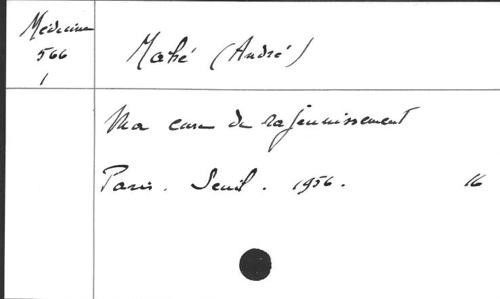 Médecine
566
1
Mahé (André)
Ma cure de rajeunissement
Paris. Seuil. 1956. 16